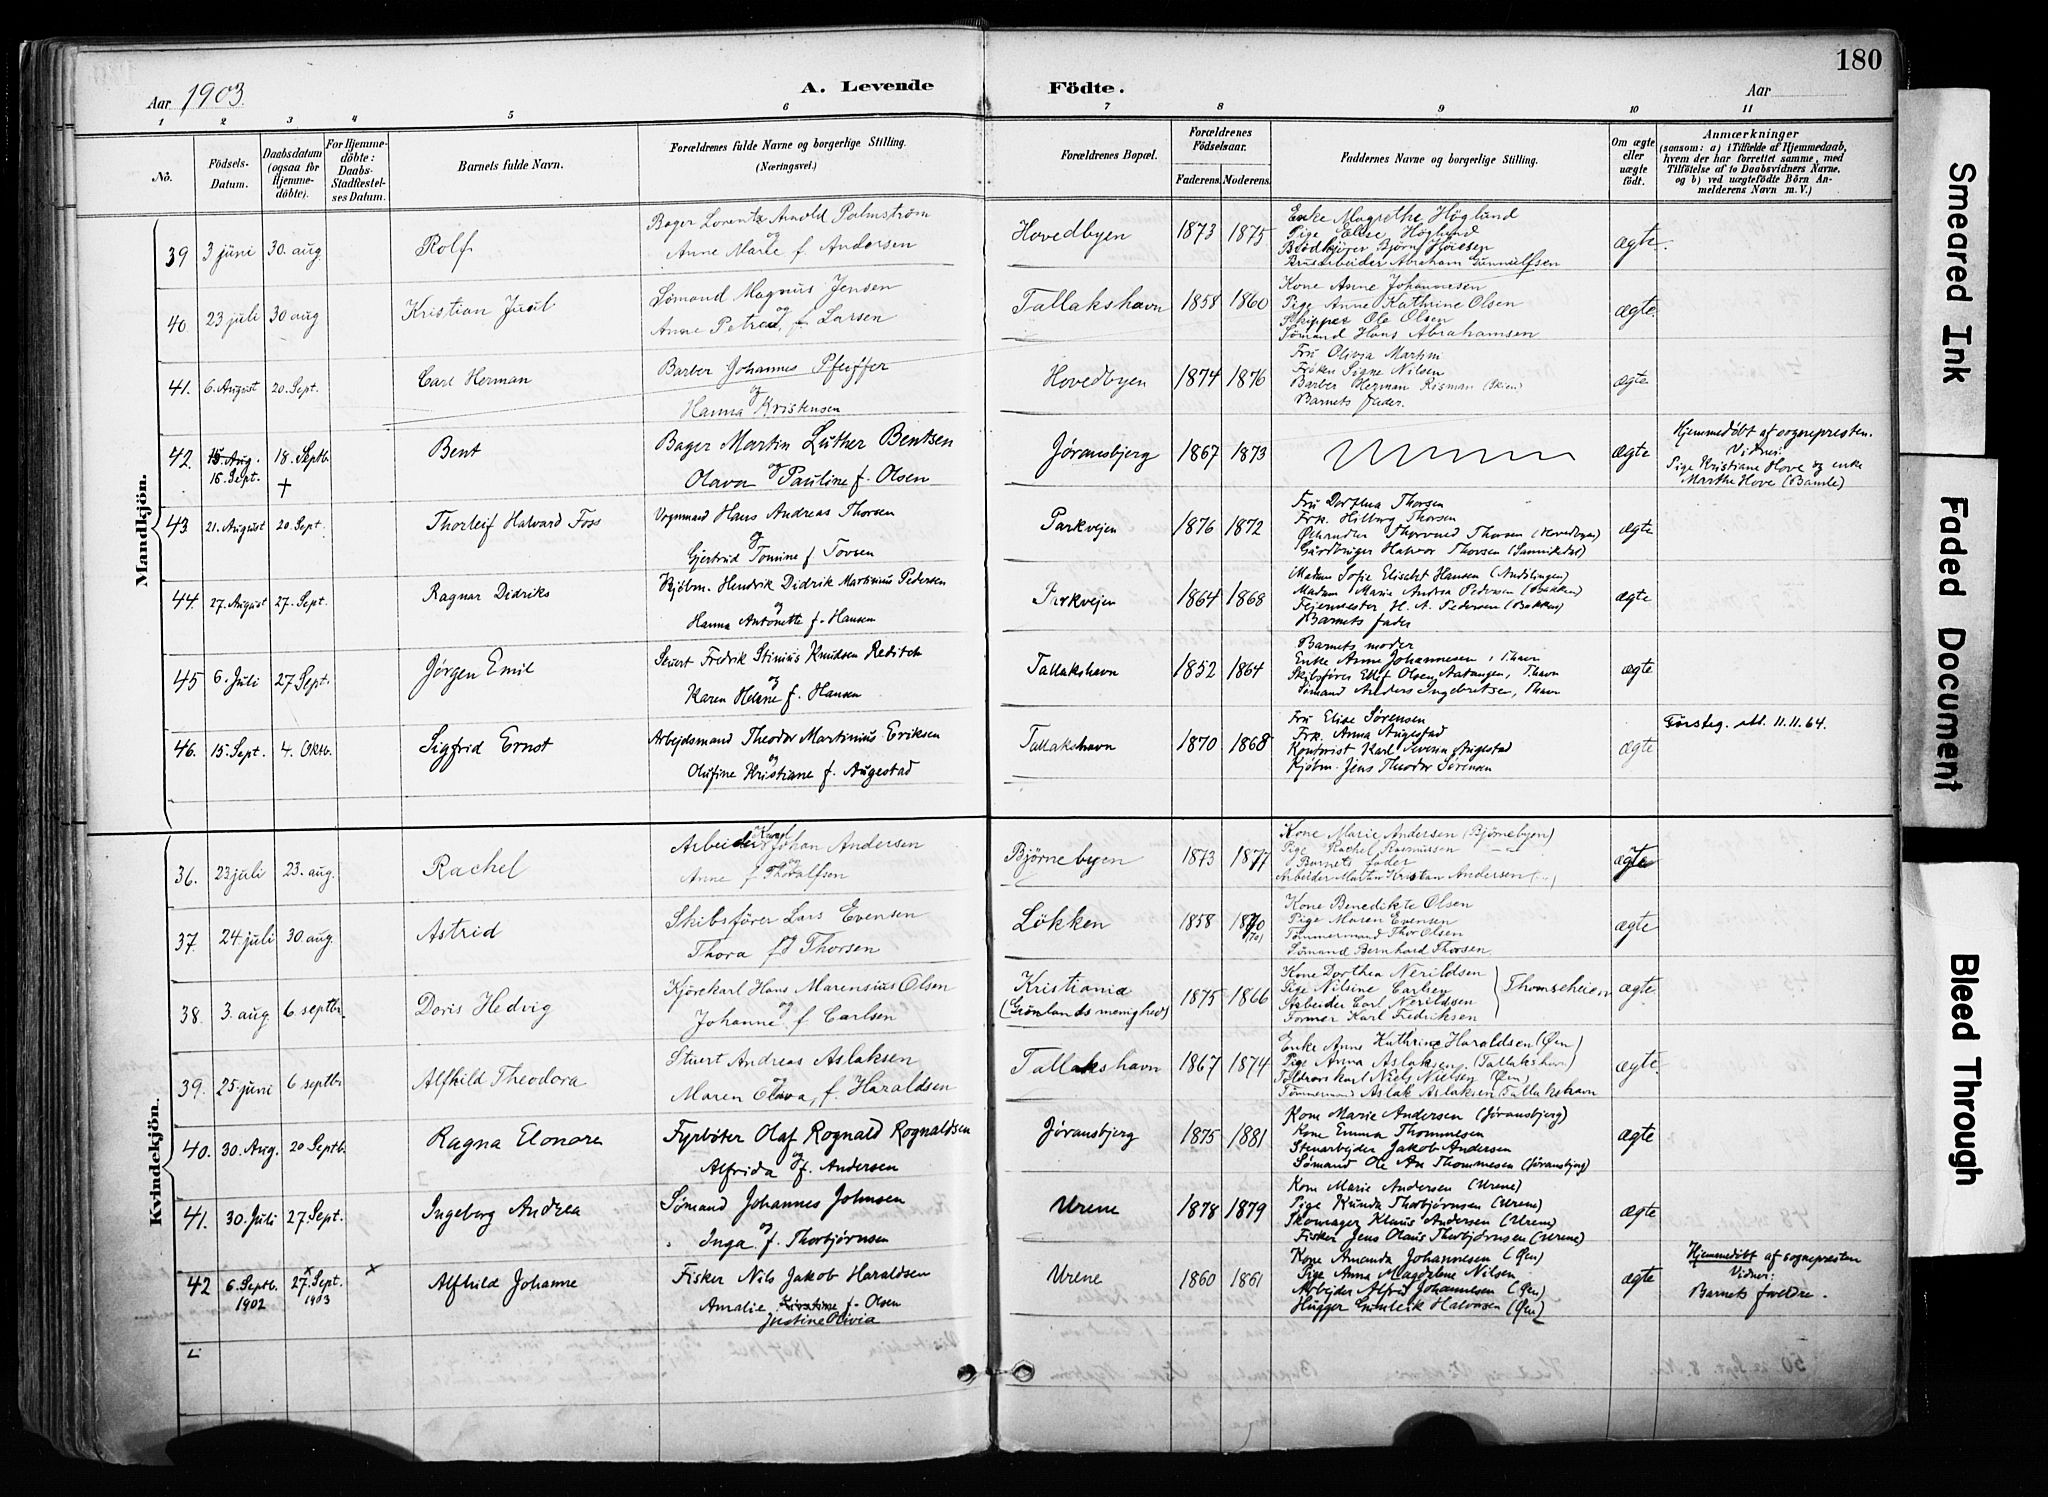 180
Aar 1903.
A. Levende Födte.
Aar
1 2 3 4 5 6 7 8 9 10 11
No.
Födsels-Datum.
Daabsdatum (ogsaa för Hjemmedöbte).
For Hjemmedöbte: Daabs-Stadfæstelses Datum.
Barnets fulde Navn.
Forældrenes fulde Navne og borgerlige Stilling.
(Næringsvei.)
Forældrenes Bopæl.
Forældrenes Födselsaar.
Faderens. Moderens.
Faddernes Navne og borgerlige Stilling.
Om ægte eller uægte födt.
Anmærkninger
(saasom: a) i Tilfælde af Hjemmedaab, hvem der har forrettet samme, med Tilföielse af to Daabsvidners Navne, og b) ved uægtefödte Börn Anmelderens Navn m. V.)
Mandkjön.
39 3 juni 30. aug. Rolf
Bager Lorentz Arnold Palmström
og
Anne Marie f. Andersen
Hovedbyen 1873 1875
Enke Magrethe Höglund
Pige Elise Höglund
Brödkjører Björn Høiesen
Brusarbeider Abraham Gunnulfsen
ægte.
40 23 juli 30 aug Kristian Juul
Sømand Magnus Jensen
og
Anne Petrea, f. Larsen
Tallakshavn 1858 1860
Kone Anne Johannesen
Pige Anne Kathrine Olsen
Skipper Ole Olsen
Sømand Hans Abrahamsen
ægte.
41. 6. August 20. Sept. Carl Herman
Barber Johannes Pfeiffer
og
Hanna Kristensen
Hovedbyen 1874 1876
Fru Olivia Martini
Frøken Signe Nilsen
Barber Herman Risman (Skien)
Barnets fader.
ægte
42. 15. Aug. 18. Septb. Bent
16. Sept. †
Bager Martin Luther Bentsen
og
Olava Pauline f. Olsen
Jøransbjerg 1867 1873
ægte
Hjemmedøbt af sognepresten.
Vidner:
Pige Kristiane Hove og enke
Marthe Hove (Bamle)
43 21. August 20. Sept. Thorleif Halvard Foss
Vognmand Hans Andreas Thorsen
og
Gjertrud Tomine f. Tovsen
Parkvejen 1876 1872
Fru Dorthea Thorsen
Frk. Hilborg Thorsen
Thorvald Thorsen (Hovedbyen)
Gårdbruger Halvor Thorsen (Sannikedal)
ægte
44. 27. August 27. Sept. Ragnar Didriks
Kjøbm. Hendrik Didrik Martinius Pedersen
og
Hanna Antonette f. Hansen
Parkvejen 1864 1868
Madam Sofie Elisabet Hansen
Madam Marie Andrea Pedersen (Bakken)
Fejermester H. A. Pedersen (Bakken)
Barnets fader
ægte
45 6. Juli 27 Sept. Jørgen Emil
Stuert Fredrik Stinius Knudsen Reditch
og
Karen Helene f. Hansen
Tallakshavn 1852 1864
Barnets moder
Enke Anne Johannesen, T.havn
Skibsfører Ellef Olsen Aatangen, T.havn
Sømand Anders Ingebretsen, T.havn
ægte
46. 15. Sept. 4. Oktb. Sigfrid Ernst
Arbejdsmand Theodor Martinius Eriksen
og
Olufine Kristiane f. Augestad
Tallakshavn 1870 1868
Fru Elise Sørensen
Frk. Anna Augestad
Kontorist Karl Severin Augestad
Kjøbm. Jens Theodor Sørensen
ægte
Førsteg. att. 11.11.64.
Kvindekjön.
36. 23 juli 23. aug. Rachel
Arbeider Knut Johan Andersen
og
Anne f. Thoralfsen
Bjørnebyen 1873 1877
Kone Marie Andersen (Bjørnebyen)
Pige Rachel Rasmussen
Barnets fader
Arbeider Martin Kristan Andersen
ægte
37. 24. juli 30. aug. Astrid
Skibsfører Lars Evensen
og
Thora f. Thorsen
Løkken 1858 1870
(70)
Kone Benedikte Olsen
Pige Maren Evensen
Tømmermand Thor Olsen
Sømand Bernhard Thorsen
ægte
38. 3. aug. 6. septbr. Doris Hedvig
Kjørekarl Hans Marensius Olsen
og
Johanne f. Carlsen
Kristiania
(Grønlands menighed)
1875 1866
Kone Dorthea Nerildsen
Pige Nilsine Carlsen
Arbeider Carl Nerildsen
Former Karl Fredriksen
Thomeheien
ægte.
39. 25. juni 6 septbr Alfhild Theodora
Stuert Andreas Aslaksen
og
Maren Olava, f. Haraldsen
Tallakshavn 1867 1874
Enke Anne Kathrine Haraldsen (Øen)
Pige Anna Aslaksen (Tallakshavn)
Toldrorskarl Niels Nielsen (Øen)
Tømmermand Aslak Aslaksen Tallakshavn
ægte.
40. 30. Aug. 20 Septb. Ragna Elonore
Fyrbøter Olaf Rognald Rognaldsen
og
Alfrida f. Andersen
Jøransbjerg 1875 1881
Kone Marie Andersen (Jøransbjerg)
Kone Emma Thommesen
Stenarbejder Jakob Andersen
Sømand Ole Ax Thommesen (Jøransbjerg)
ægte
41. 30. Juli 27. Sept. Ingeborg Andrea
Sømand Johannes Johnsen
og
Inga f. Thorbjørnsen
Urene 1878 1879
Kone Marie Andersen (Urene)
Pige Kunda Thorbjørnsen (Urene)
Skomager Klaus Andersen (Urene)
Fisker Jens Olaus Thorbjørnsen (Urene)
ægte
42 6. Septb. 27. Sept. x Alfhild Johanne
1902 1903
Fisker Nils Jakob Haraldsen
Amalie Kirstine f. Olsen
Justine Olivia
Urene 1860 1861
Kone Amanda Johannesen (Øen)
Pige Anna Magdalene Nilsen
Arbejder Alfred Johannesen (Øen)
Hugger Gunleik Halvorsen (Øen)
ægte
Hjemmedøbt af sognepresten
Vidner:
Barnets foreldre.
Smeared Ink
Faded Document
Bleed Through